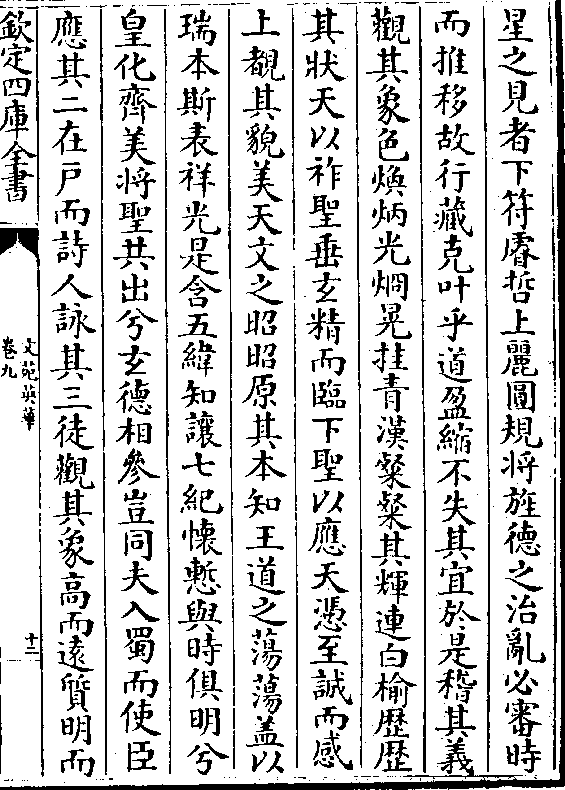 星之見者下符睿哲上麗圓規将旌德之治亂必審時
而推移故行藏克叶乎道盈縮不失其宜於是稽其義
觀其象色煥炳光烱晃挂青漢粲粲其輝連白榆歴歴
其狀天以祚聖垂𤣥精而臨下聖以應天憑至誠而感
上覩其貌美天文之昭昭原其本知王道之蕩蕩盖以
瑞本斯表祥光是含五緯知讓七紀懐慙與時俱明兮
皇化齊美将聖共出兮𤣥德相參豈同夫入蜀而使臣
應其二在戸而詩人詠其三徒觀其象高而遠質明而
欽定四庫全書
文苑英華
卷九
十二